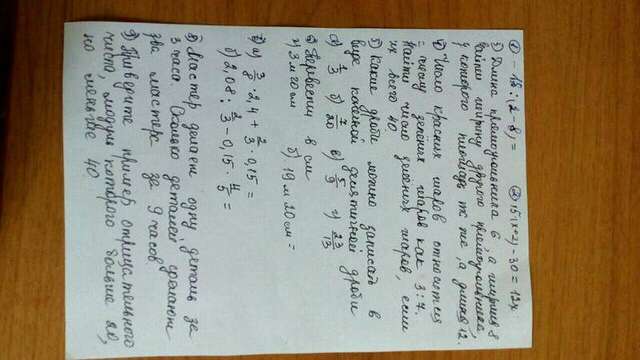 ① - 18 : (2 - 8) =   ② 15(x+2) - 30 = 12x
3) Длина прямоугольника 6, а ширина 8
найти ширину другого прямоугольника,
у которого площадь та же, а длина 12.
4) Число красных шаров относится
к числу зелёных шаров как 3:7.
Найти число зелёных шаров, если
их всего 40
5) Какие дроби можно записать в
виде конечной десятичной дроби
а) 1/3 б) 7/20 в) 5/9 г) 23/13
⑥ Перевести в см
а) 3 м 20 см б) 19 м 20 см =
⑦ а) 3/8 · 2,4 + 2/3 · 0,15 =
б) 2,08 : 2/3 - 0,15 · 4/5 =
⑧ Мастер делает одну деталь за
3 часа. Сколько деталей сделают
два мастера за 9 часов
⑨ Приведите пример отрицательного
числа, модуль которого больше 20,
но меньше 40